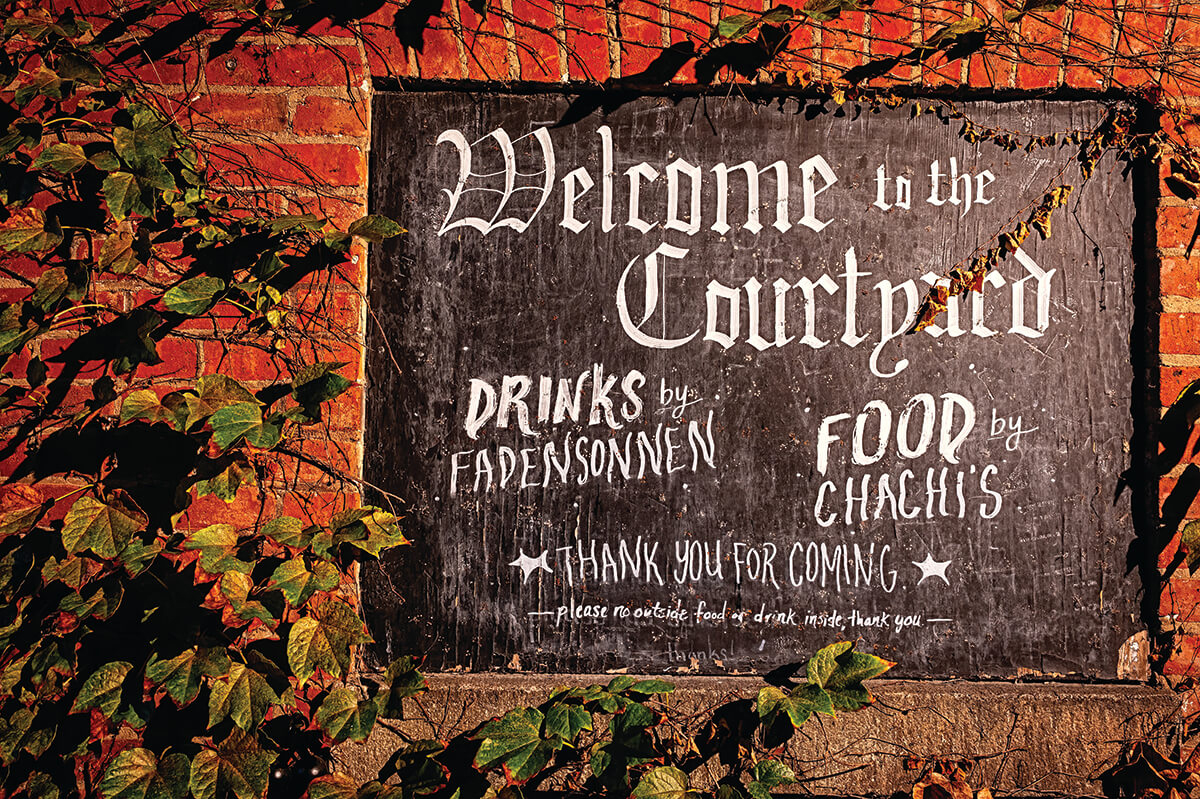 Welcome to the
Courtyard
DRINKS by
FADENSONNEN
FOOD by
CHACHI'S
THANK YOU FOR COMING
— please no outside food or drink inside, thank you —
thanks!